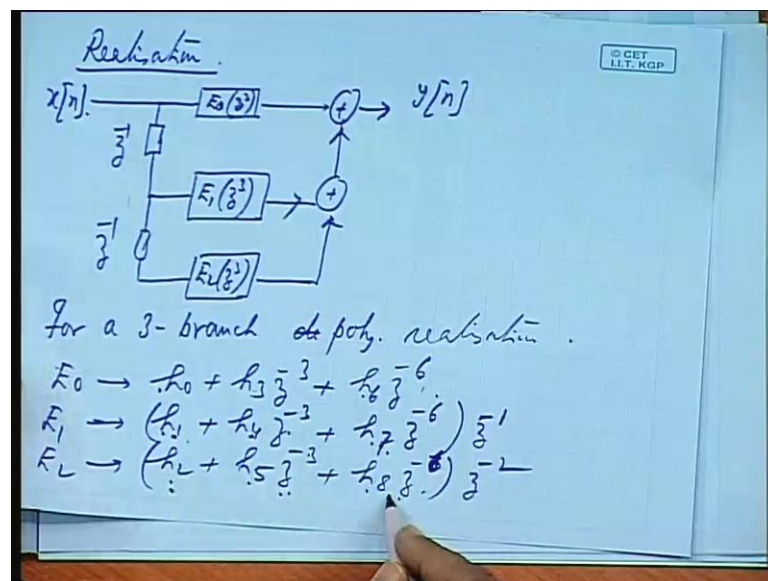 Realisation.
© CET
I.I.T. KGP
x[n]. E₀(z³) + y[n]
z⁻¹
E₁(z³) +
z⁻¹
E₂(z³)
For a 3-branch poly. realisation.
E₀ → h₀ + h₃ z⁻³ + h₆ z⁻⁶
E₁ → (h₁ + h₄ z⁻³ + h₇ z⁻⁶) z⁻¹
E₂ → (h₂ + h₅ z⁻³ + h₈ z⁻⁶) z⁻²